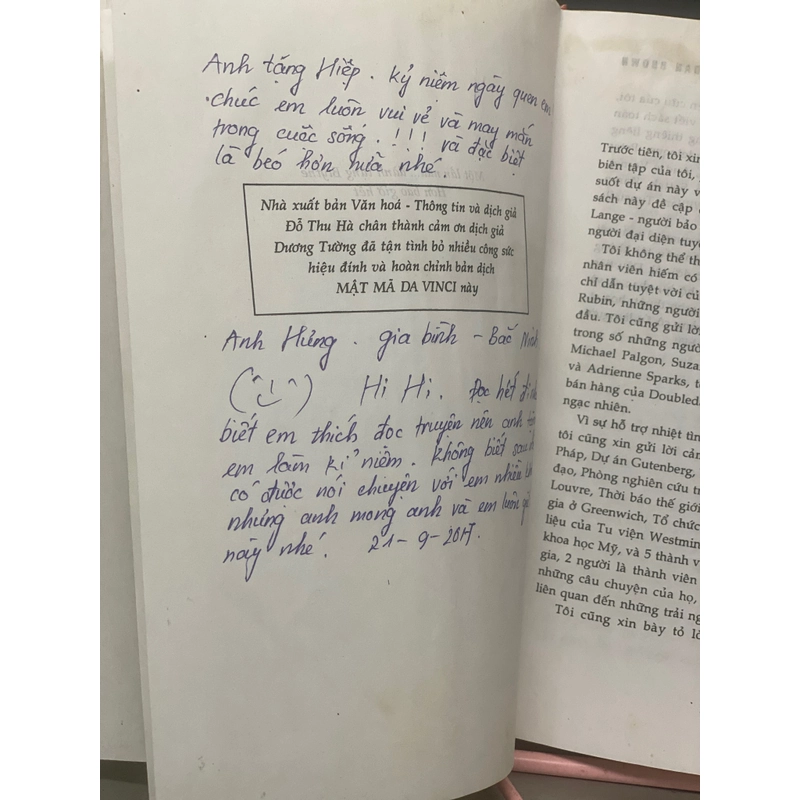 Anh tặng Hiệp. Kỷ niệm ngày quen em
chúc em luôn vui vẻ và may mắn
trong cuộc sống. !!! và đặc biệt
là béo hơn nữa nhé.
Nhà xuất bản Văn hoá - Thông tin và dịch giả
Đỗ Thu Hà chân thành cảm ơn dịch giả
Dương Tường đã tận tình bỏ nhiều công sức
hiệu đính và hoàn chỉnh bản dịch
MẬT MÃ DA VINCI này
Anh Hưng. gia bình - Bắc Ninh
Hi Hi. Đọc hết đi
biết em thích đọc truyện nên anh
em làm kỉ niềm. Không biết sau
có được nói chuyện với em nhiều
nhưng anh mong anh và em luôn
này nhé. 21-9-2017.
DAN BROWN
Trước tiên, tôi xin
biên tập của tôi,
suốt dự án này v
sách này đề cập
Lange - người bảo
người đại diện tuy
Tôi không thể th
nhân viên hiếm có
chỉ dẫn tuyệt vời củ
Rubin, những người
đầu. Tôi cũng gửi lời
trong số những ngườ
Michael Palgon, Suza
và Adrienne Sparks, t
bán hàng của Doubled
ngạc nhiên.
Vì sự hỗ trợ nhiệt tìn
tôi cũng xin gửi lời cảm
Pháp, Dự án Gutenberg,
đạo, Phòng nghiên cứu t
Louvre, Thời báo thế giới
gia ở Greenwich, Tổ chức
liệu của Tu viện Westmin
khoa học Mỹ, và 5 thành v
gia, 2 người là thành viên
những câu chuyện của họ,
liên quan đến những trải ng
Tôi cũng xin bày tỏ lò